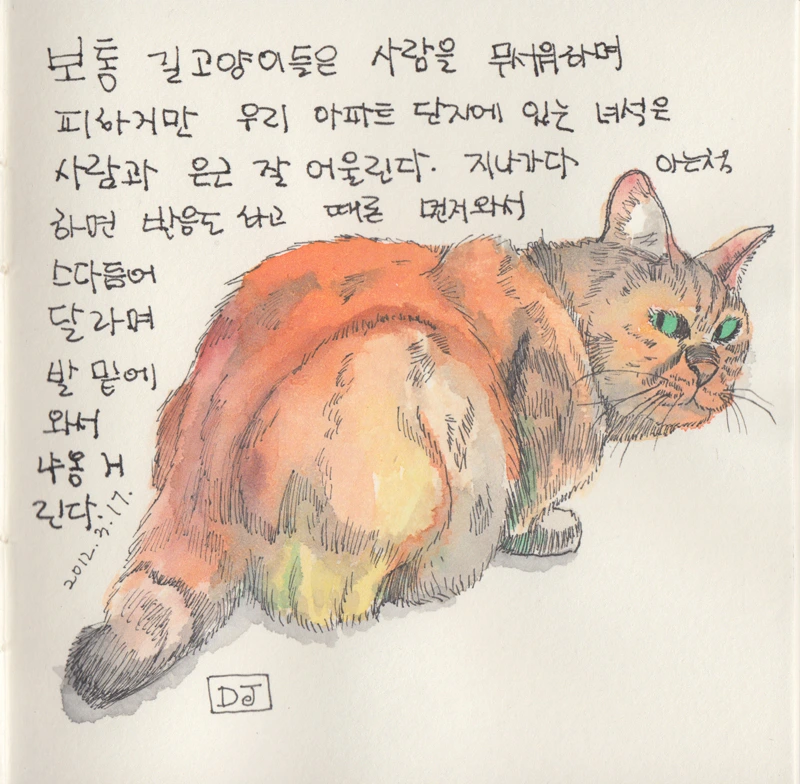 보통 길고양이들은 사람을 무서워하며
피하거만 우리 아파트 단지에 있는 녀석은
사람과 은근 잘 어울린다. 지나가다 아는척
하면 반응도 하고 때론 먼저와서
스다듬어
달라며
발 밑에
와서
냐옹 거
린다.
2012.3.17.
DJ